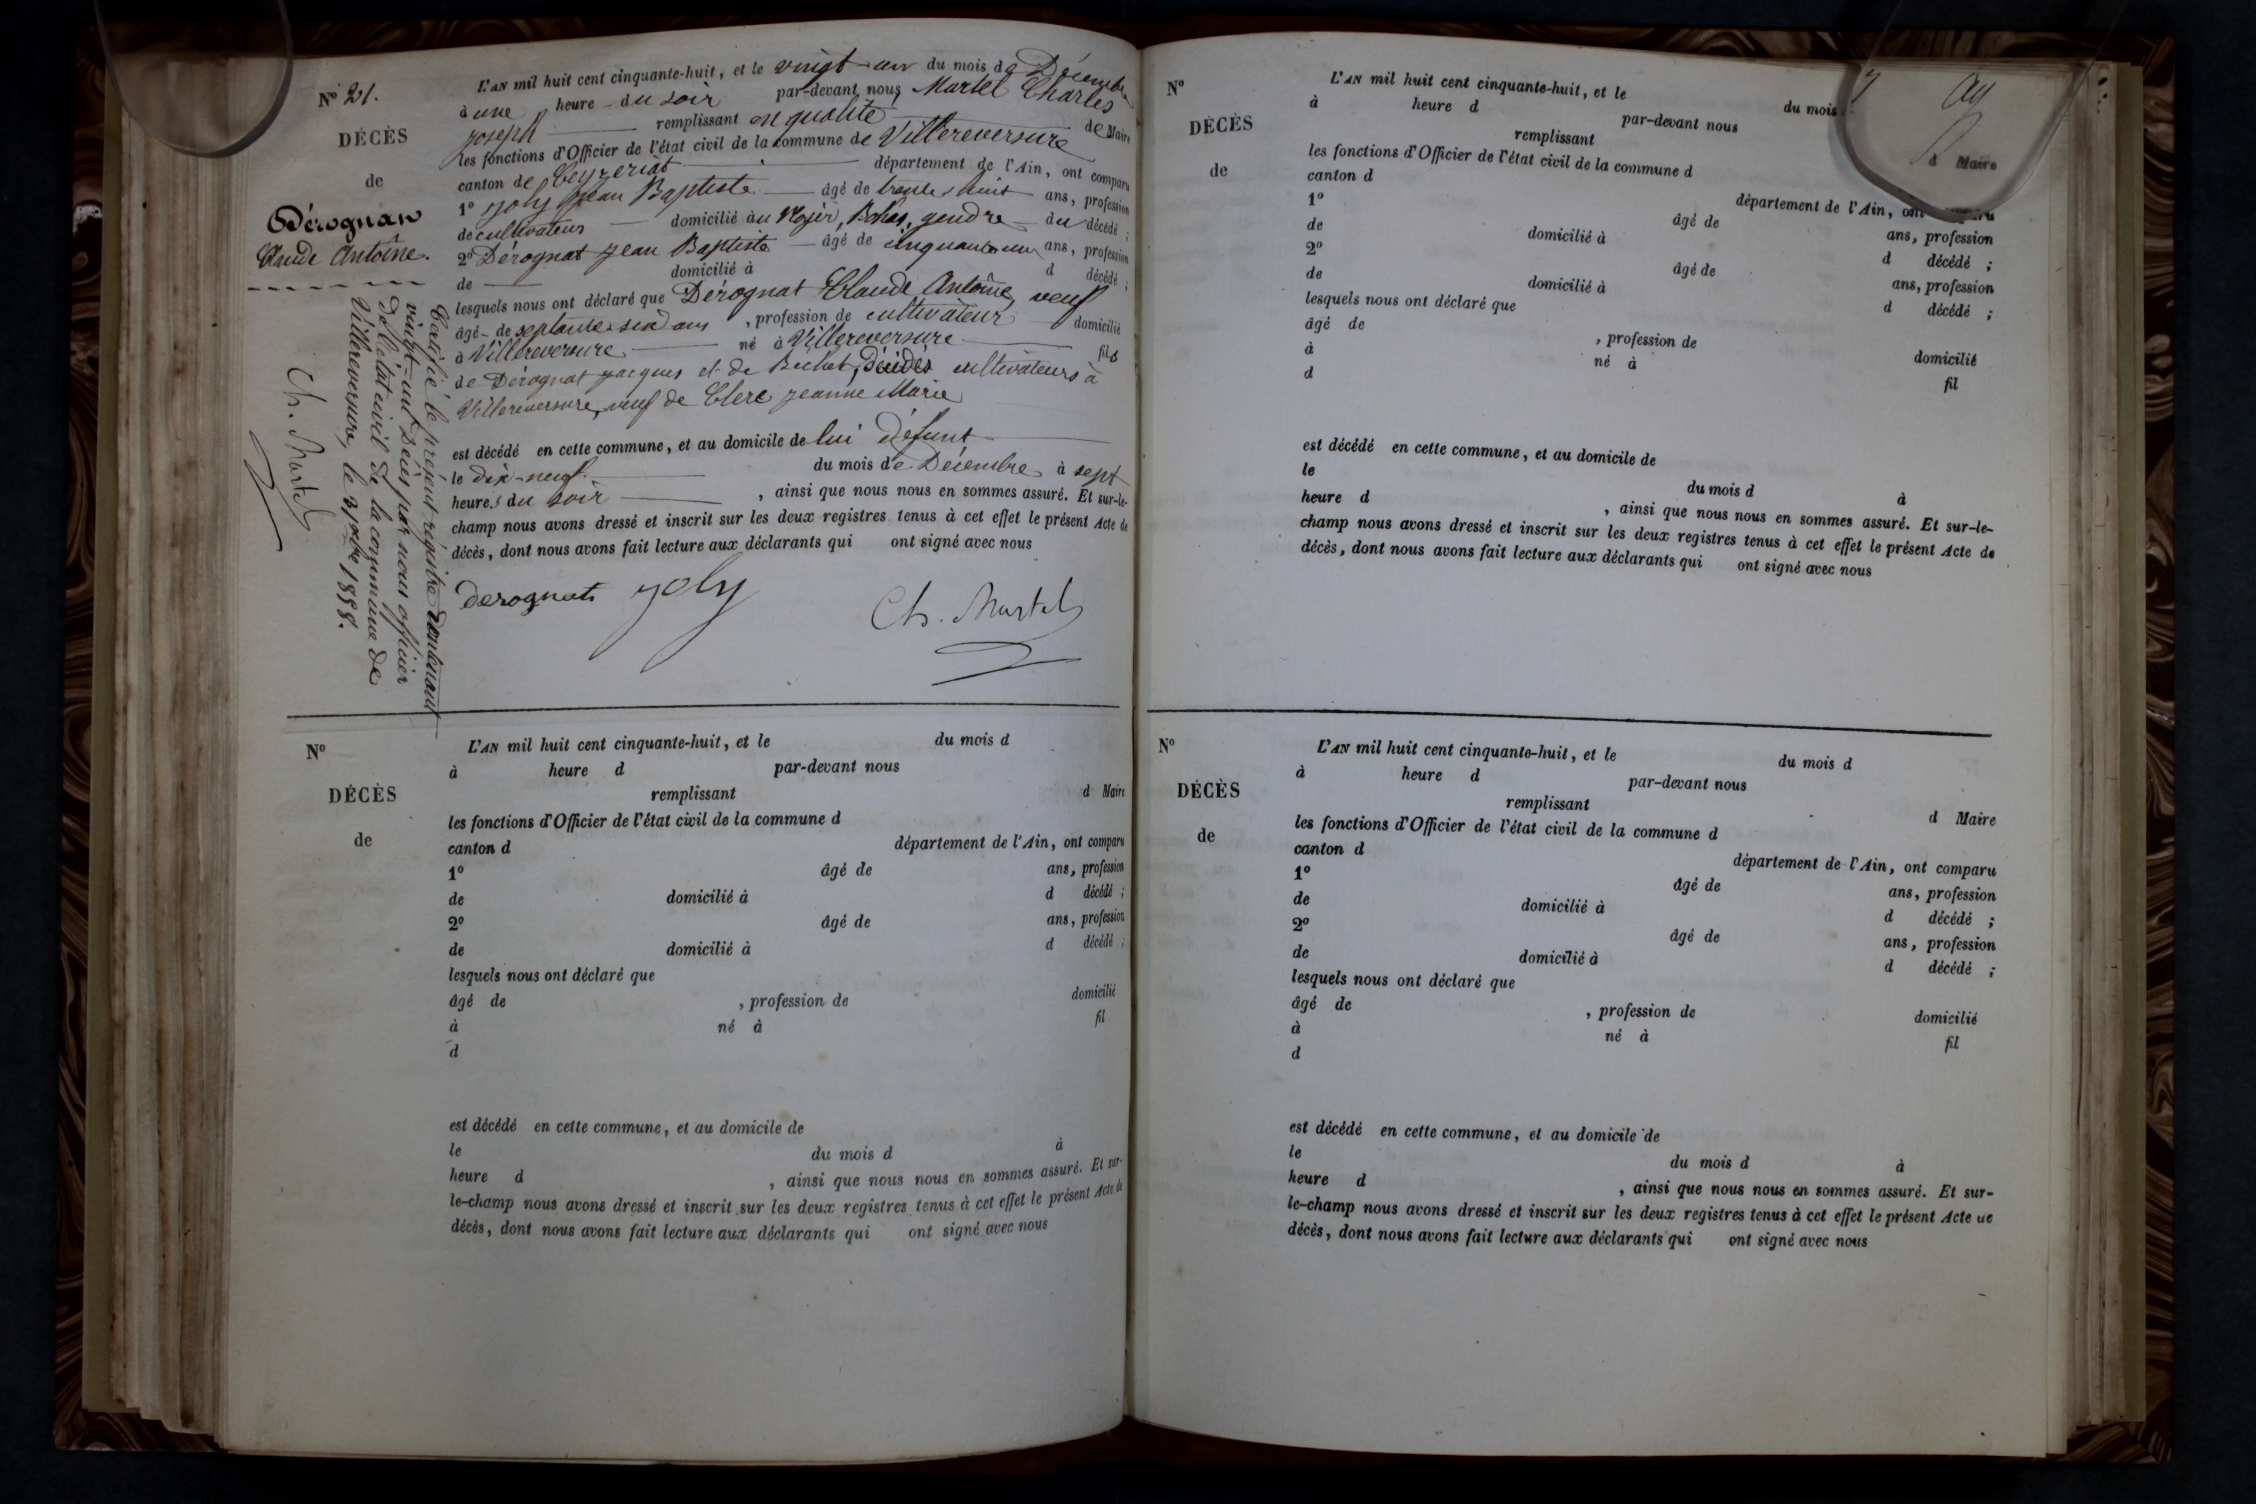 N° 21.
DÉCÈS
de
Dérognat
Claude Antoine.
L'AN mil huit cent cinquante-huit, et le vingt-un du mois de Décembre
à une heure du soir par-devant nous Martel Charles
joseph remplissant en qualité de Maire
les fonctions d'Officier de l'état civil de la commune de Villereversure
canton de Ceyzeriat département de l'Ain, ont comparu
1° joly jean Baptiste âgé de trente huit ans, profession
de cultivateur domicilié au Bohas, gendre du décédé ;
2° Dérognat jean Baptiste âgé de cinquante un ans, profession
de domicilié à d décédé ;
lesquels nous ont déclaré que Dérognat Claude Antoine, veuf
âgé de septante six ans, profession de cultivateur domicilié
à Villereversure né à Villereversure fils
de Dérognat jacques et de Béchet, décédés cultivateurs à
Villereversure, veuf de Clerc jeanne Marie
est décédé en cette commune, et au domicile de lui défunt
le dix-neuf du mois de Décembre à sept
heures du soir, ainsi que nous nous en sommes assuré. Et sur-le-
champ nous avons dressé et inscrit sur les deux registres tenus à cet effet le présent Acte de
décès, dont nous avons fait lecture aux déclarants qui ont signé avec nous
derognat joly Ch. Martel
Certifié le présent régistre contenant
vingt-un Décès par nous officier
de l'état civil de la commune de
Villereversure, le 31 xbre 1858.
Ch. Martel
N°
DÉCÈS
de
L'AN mil huit cent cinquante-huit, et le du mois d
à heure d par-devant nous
remplissant d Maire
les fonctions d'Officier de l'état civil de la commune d
canton d département de l'Ain, ont comparu
1° âgé de ans, profession
de domicilié à d décédé ;
2° âgé de ans, profession
de domicilié à d décédé ;
lesquels nous ont déclaré que
âgé de , profession de domicilié
à né à fil
d
est décédé en cette commune, et au domicile de
le du mois d à
heure d , ainsi que nous nous en sommes assuré. Et sur-
le-champ nous avons dressé et inscrit sur les deux registres tenus à cet effet le présent Acte de
décès, dont nous avons fait lecture aux déclarants qui ont signé avec nous
N°
DÉCÈS
de
L'AN mil huit cent cinquante-huit, et le du mois
à heure d par-devant nous
remplissant d Maire
les fonctions d'Officier de l'état civil de la commune d
canton d département de l'Ain, ont comparu
1° âgé de ans, profession
de domicilié à d décédé ;
2° âgé de ans, profession
de domicilié à d décédé ;
lesquels nous ont déclaré que
âgé de , profession de domicilié
à né à fil
d
est décédé en cette commune, et au domicile de
le du mois d à
heure d , ainsi que nous nous en sommes assuré. Et sur-le-
champ nous avons dressé et inscrit sur les deux registres tenus à cet effet le présent Acte de
décès, dont nous avons fait lecture aux déclarants qui ont signé avec nous
N°
DÉCÈS
de
L'AN mil huit cent cinquante-huit, et le du mois d
à heure d par-devant nous
remplissant d Maire
les fonctions d'Officier de l'état civil de la commune d
canton d département de l'Ain, ont comparu
1° âgé de ans, profession
de domicilié à d décédé ;
2° âgé de ans, profession
de domicilié à d décédé ;
lesquels nous ont déclaré que
âgé de , profession de domicilié
à né à fil
d
est décédé en cette commune, et au domicile de
le du mois d à
heure d , ainsi que nous nous en sommes assuré. Et sur-
le-champ nous avons dressé et inscrit sur les deux registres tenus à cet effet le présent Acte de
décès, dont nous avons fait lecture aux déclarants qui ont signé avec nous